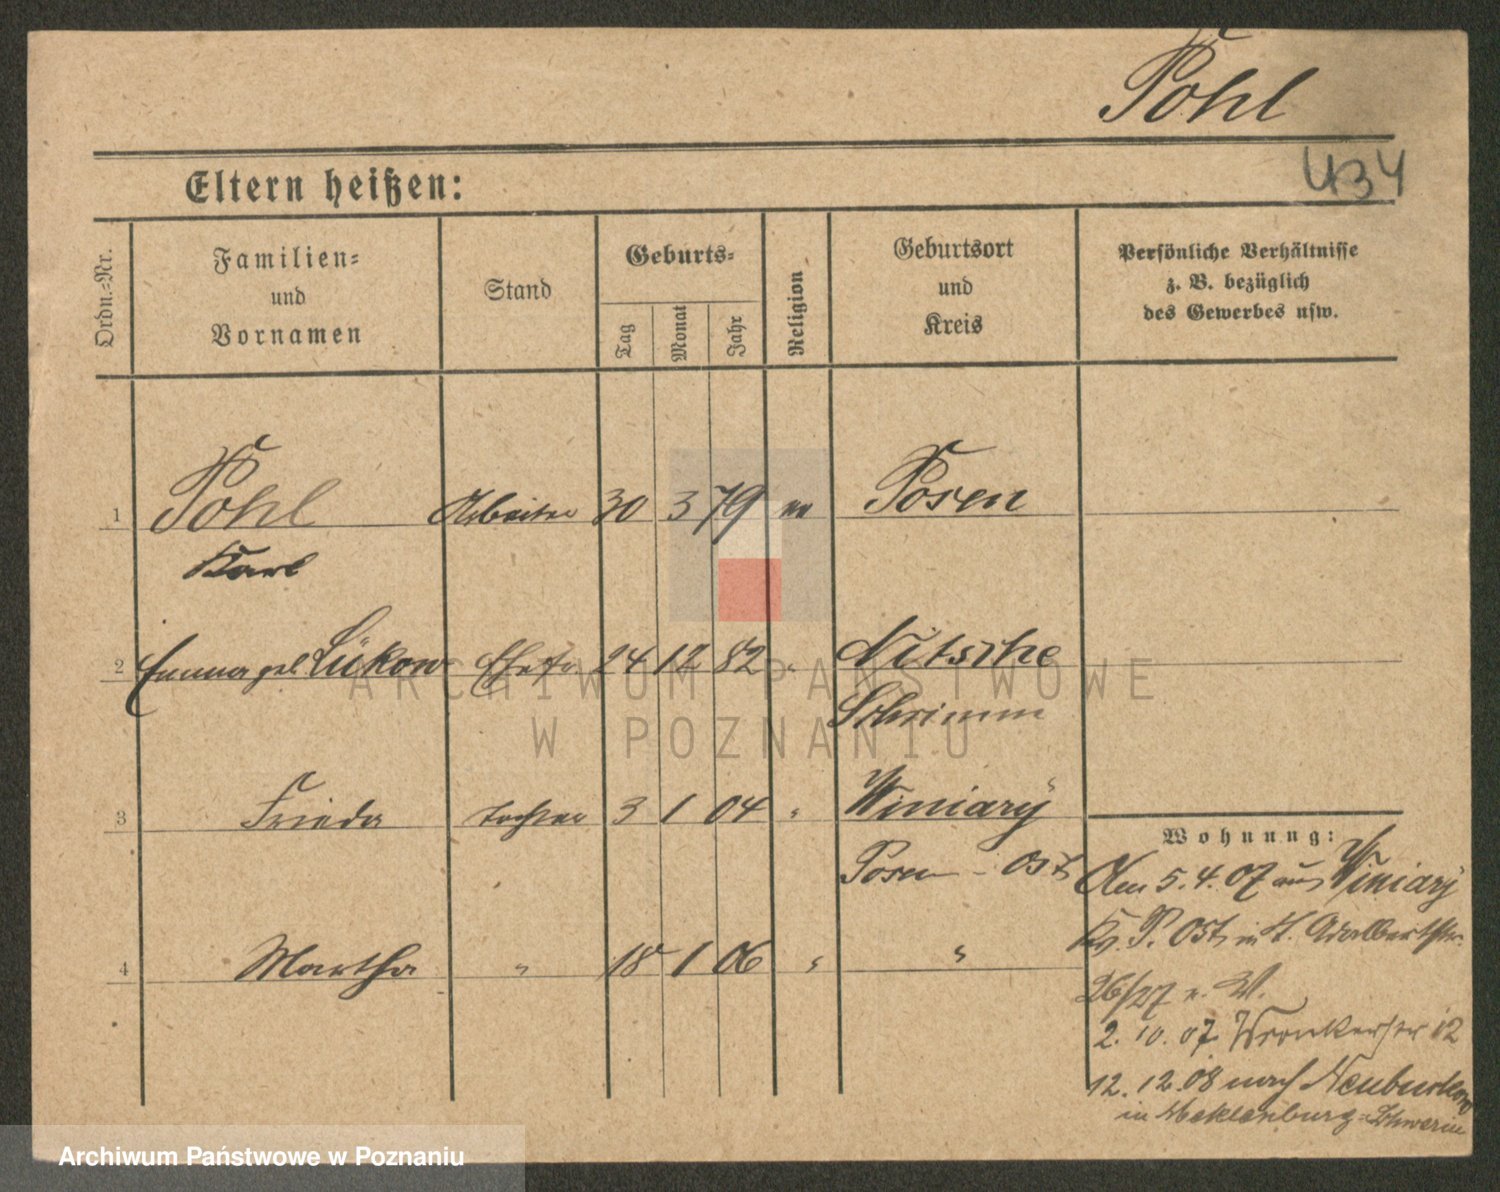 Pohl
434
Eltern heißen:
Ordn.-Nr.
Familien-
und
Vornamen
Stand
Geburts-
Tag
Monat
Jahr
Religion
Geburtsort
und
Kreis
Persönliche Verhältnisse
z. B. bezüglich
des Gewerbes usw.
1 Pohl Arbeiter 30 3 79 ev Posen
Karl
2 Emma geb Lükow Ehefr. 24 12 82 " Nitsche
Schrimm
3 Frieda Tochter 3 1 04 " Winiary
Posen - Ost
4 Martha " 18 1 06 " "
Wohnung:
Am 5.4.07 aus Winiary
Kr. P. Ost in St. Adalbertstr.
26/27 v. W.
2. 10. 07. Wronkerstr 12
12. 12 08 nach Neubuckow
in Mecklenburg-Schwerin
ARCHIWUM PAŃSTWOWE
W POZNANIU
Archiwum Państwowe w Poznaniu